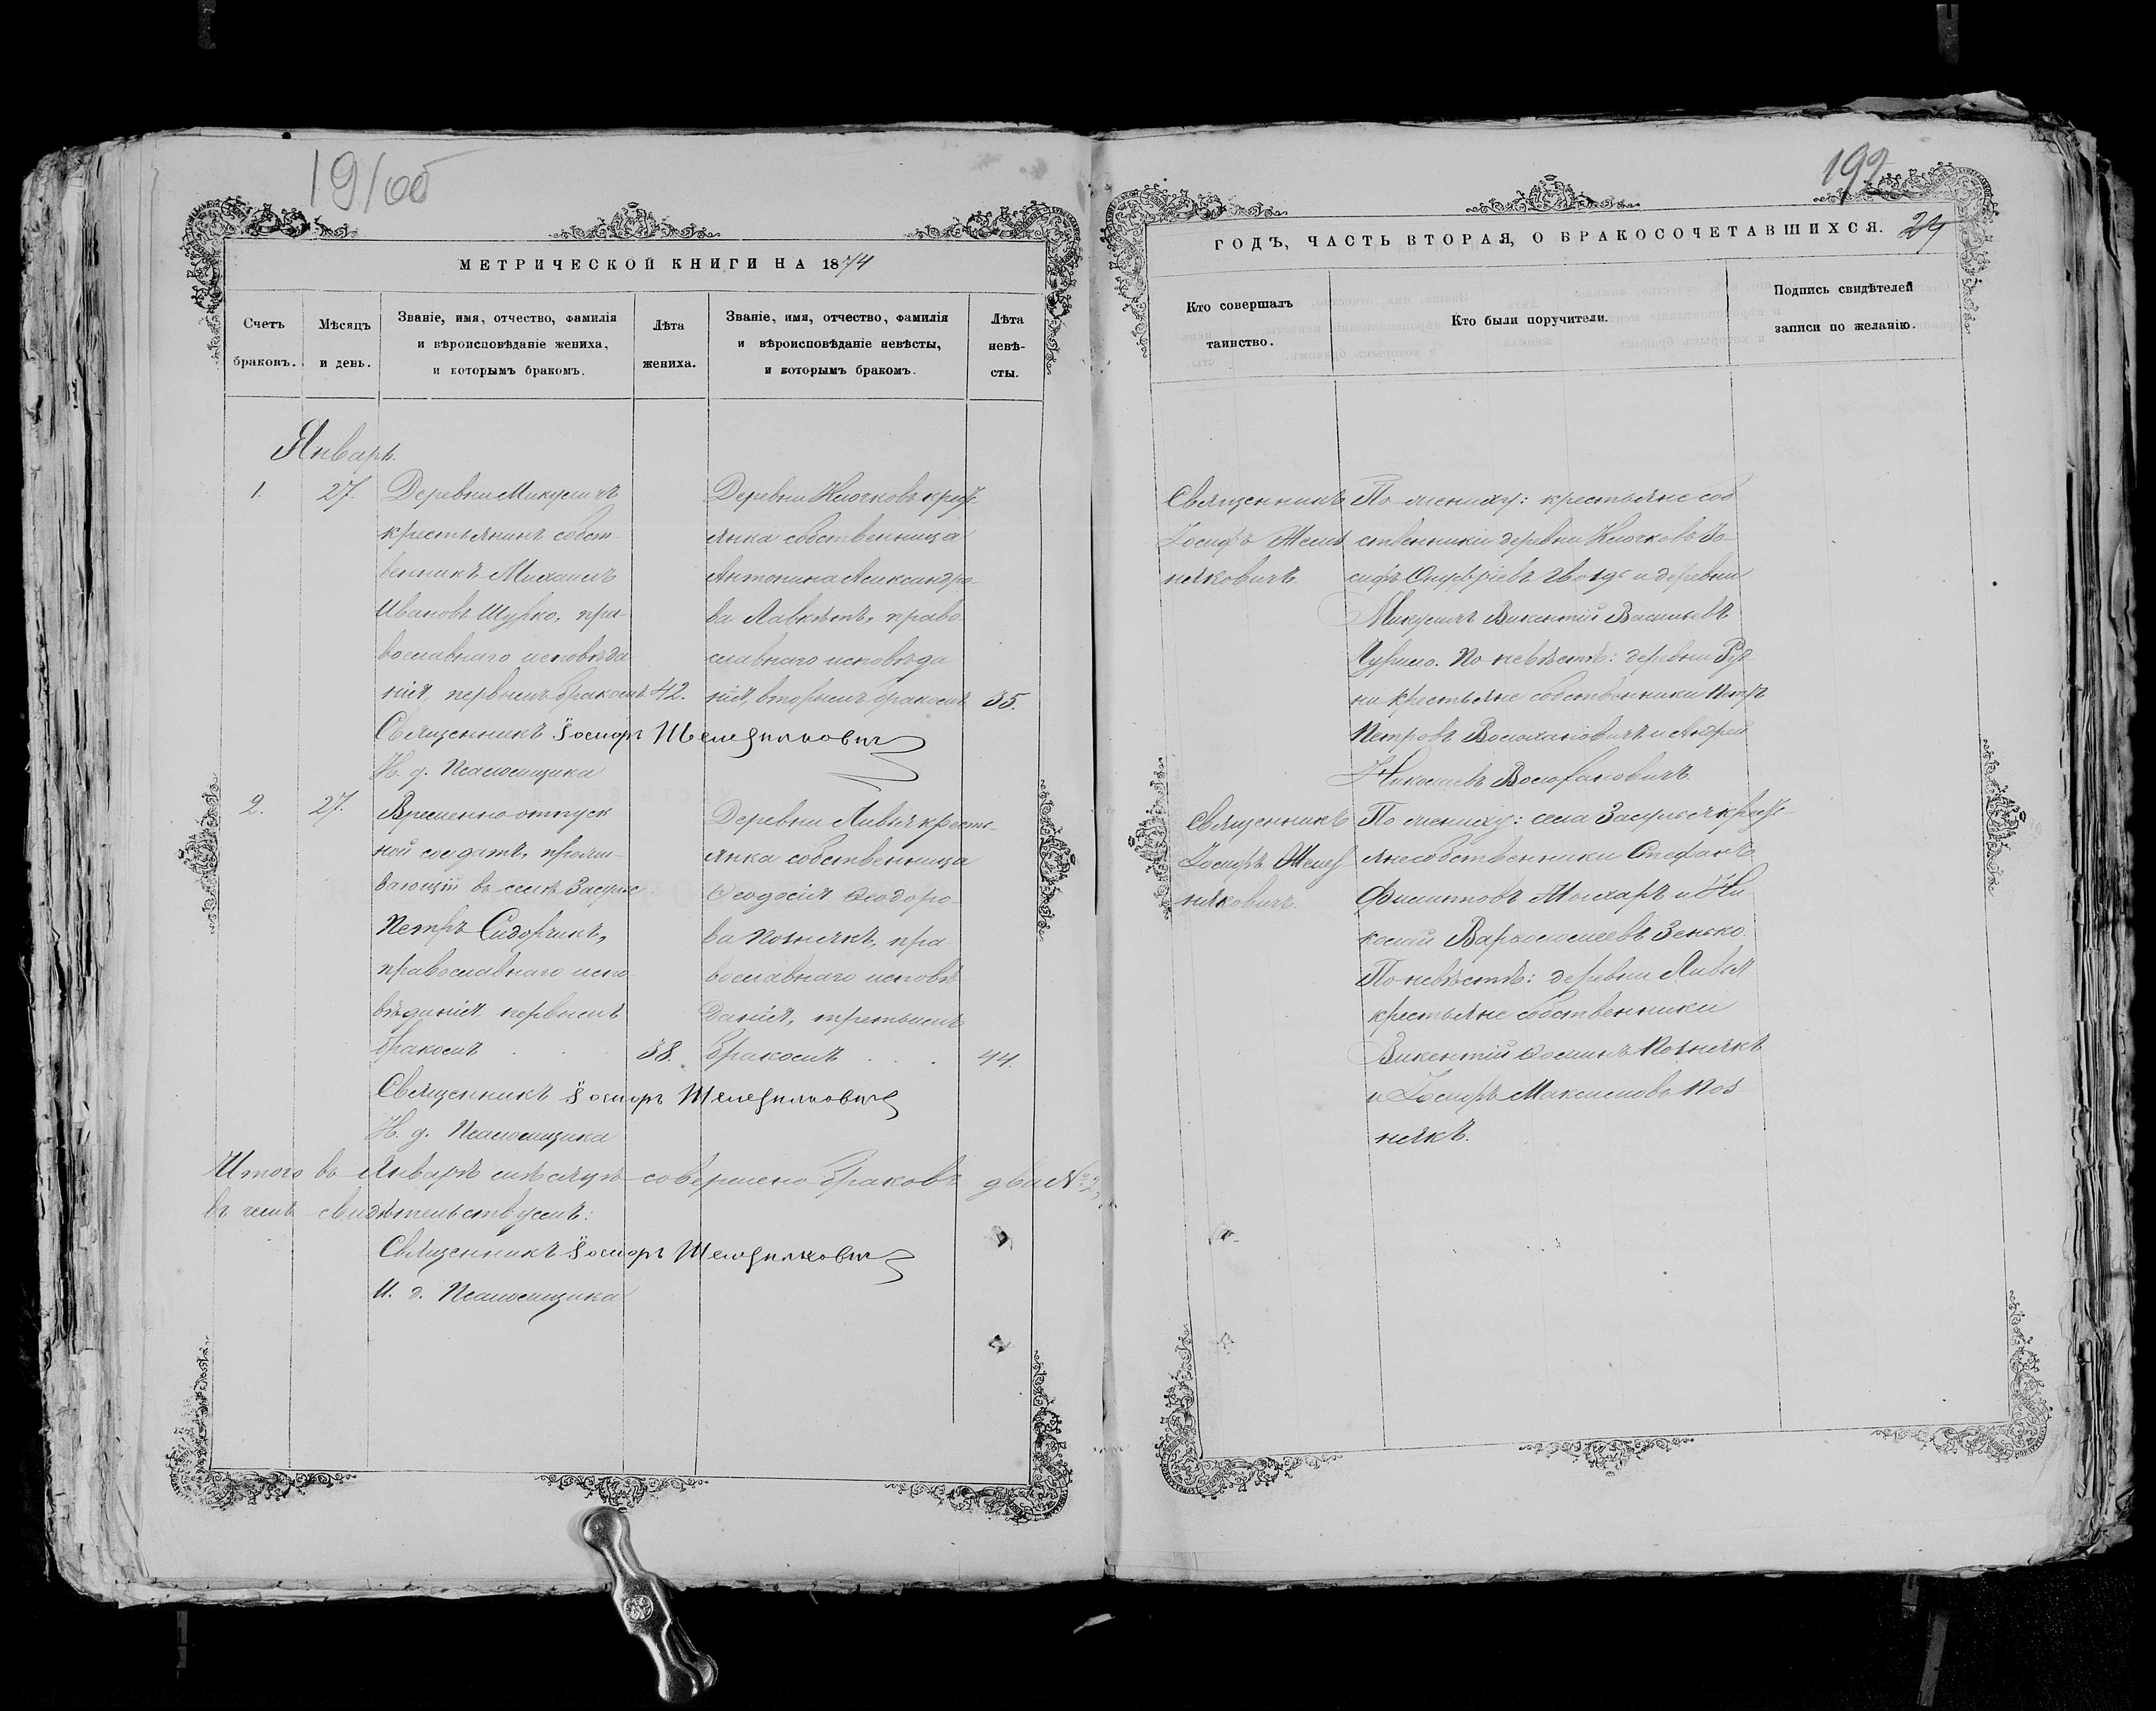 19/об
МЕТРИЧЕСКОЙ КНИГИ НА 1874
Счетъ браковъ.
Мѣсяцъ и день.
Званіе, имя, отчество, фамилія и вѣроисповѣданіе жениха, и которымъ бракомъ.
Лѣта жениха.
Званіе, имя, отчество, фамилія и вѣроисповѣданіе невѣсты, и которымъ бракомъ.
Лѣта невѣ-
сты.
Январь.
1.
27.
Деревни Микуличъ
крестьянинъ собст-
венникъ Михаилъ
Ивановъ Шурко, пра-
вославнаго исповѣда
нія, первымъ бракомъ
42.
Деревни Клочковъ крест
янка собственница
Антонина Александро-
ва Лавкѣтъ, право
славнаго исповѣда
нія, вторымъ бракомъ
35.
Священникъ Іосифъ Желѣзняковичъ
И. д. Псаломщика
2.
27.
Временно-отпуск
ной солдатъ, прожи-
вающій въ селѣ
Петръ Сидорчикъ,
православнаго испо-
вѣданія, первымъ
бракомъ
38.
Деревни Ливья кресть-
янка собственница
Ѳеодосія Ѳеодоро-
ва Познякъ, пра
вославнаго исповѣ-
данія, третьимъ
бракомъ
44.
Священникъ Іосифъ Желѣзняковичъ
И. д. Псаломщика
Итого въ Январѣ мѣсяцѣ совершено браковъ два № 2,
въ чемъ свидѣтельствуемъ:
Священникъ Іосифъ Желѣзняковичъ
И. д. Псаломщика
199
29
ГОДЪ, ЧАСТЬ ВТОРАЯ, О БРАКОСОЧЕТАВШИХСЯ.
Кто совершалъ таинство.
Кто были поручители.
Подпись свидѣтелей записи по желанію.
Священникъ
Іосифъ Желѣз
няковичъ.
По жениху: крестьяне соб
ственники деревни Клочковъ Іо-
сифъ Онуфріевъ и деревни
Микуличъ Викентій Васильевъ
По невѣстѣ: деревни Руд
ни крестьяне собственники Петръ
Петровъ Волохановичъ и Андрей
Николаевъ Волохановичъ.
Священникъ
Іосифъ Желѣз
няковичъ.
По жениху: села крест-
яне собственники Стефанъ
Филипповъ и Ни
колай Варѳоломеевъ Зенько.
По невѣстѣ: деревни Ливья
крестьяне собственники
Викентій Ѳоминъ Познякъ
и Іосифъ Максимовъ Поз
някъ.